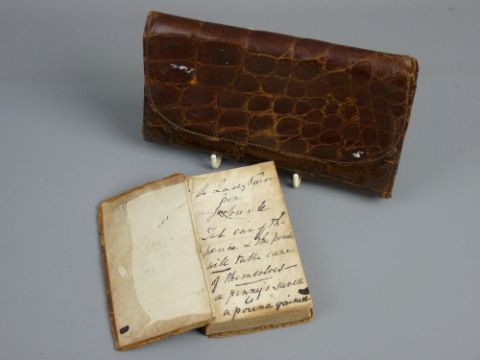 from
Take care of th-
pence & the pounds
will take care
of themselves
a penny's saved
is
a pound gained